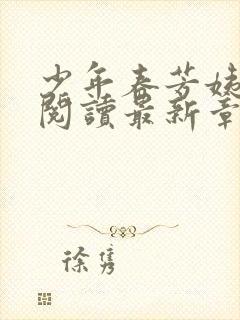 少年春芳姨
閱讀最新章
徐隽